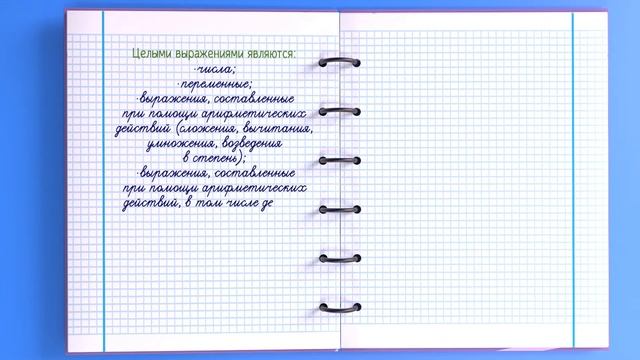 Целыми выражениями являются:
·числа;
·переменные;
·выражения, составленные
при помощи арифметических
действий (сложения, вычитания,
умножения, возведения
в степень);
·выражения, составленные
при помощи арифметических
действий, в том числе де